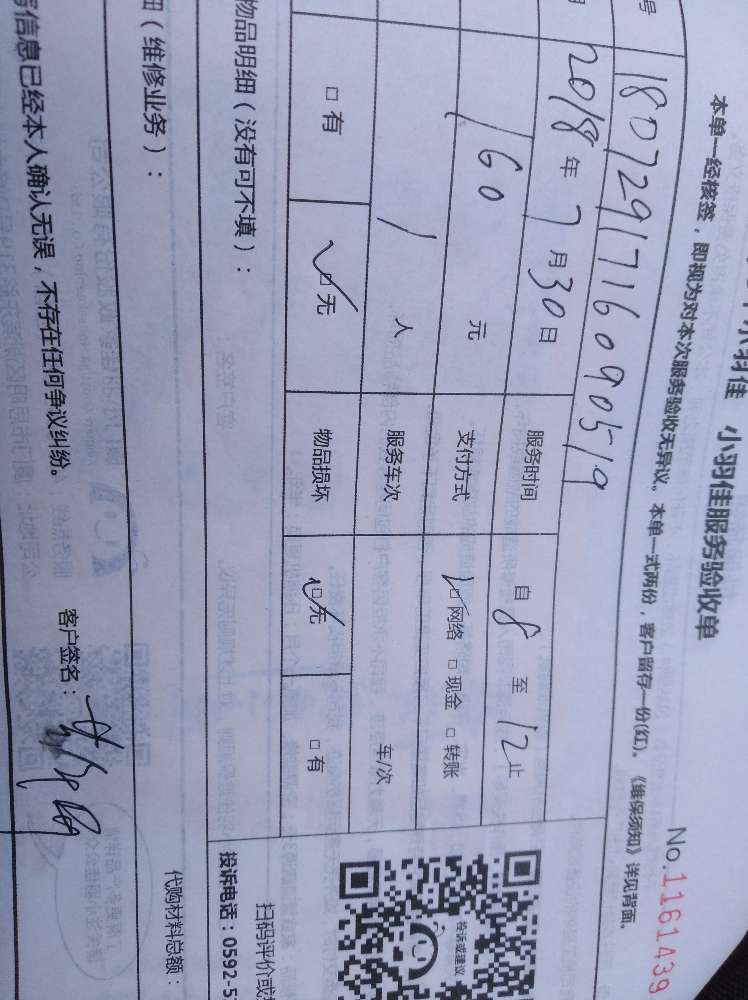 小羽佳 小羽佳服务验收单
No.1161439
本单一经核签，即视为对本次服务验收无异议。本单一式两份，客户留存一份(红)。《维保须知》详见背面。
号 1807291716090519
2018年7月30日 服务时间 自8至12止
160元 支付方式 ☑网络 □现金 □转账
1人 服务车次 车/次
□有 ☑无 物品损坏 ☑无 □有
物品明细（没有可不填）：
投诉或建议
扫码评价或
投诉电话：0592-5
细（维修业务）：
代购材料总额：
信息已经本人确认无误，不存在任何争议纠纷。
客户签名：